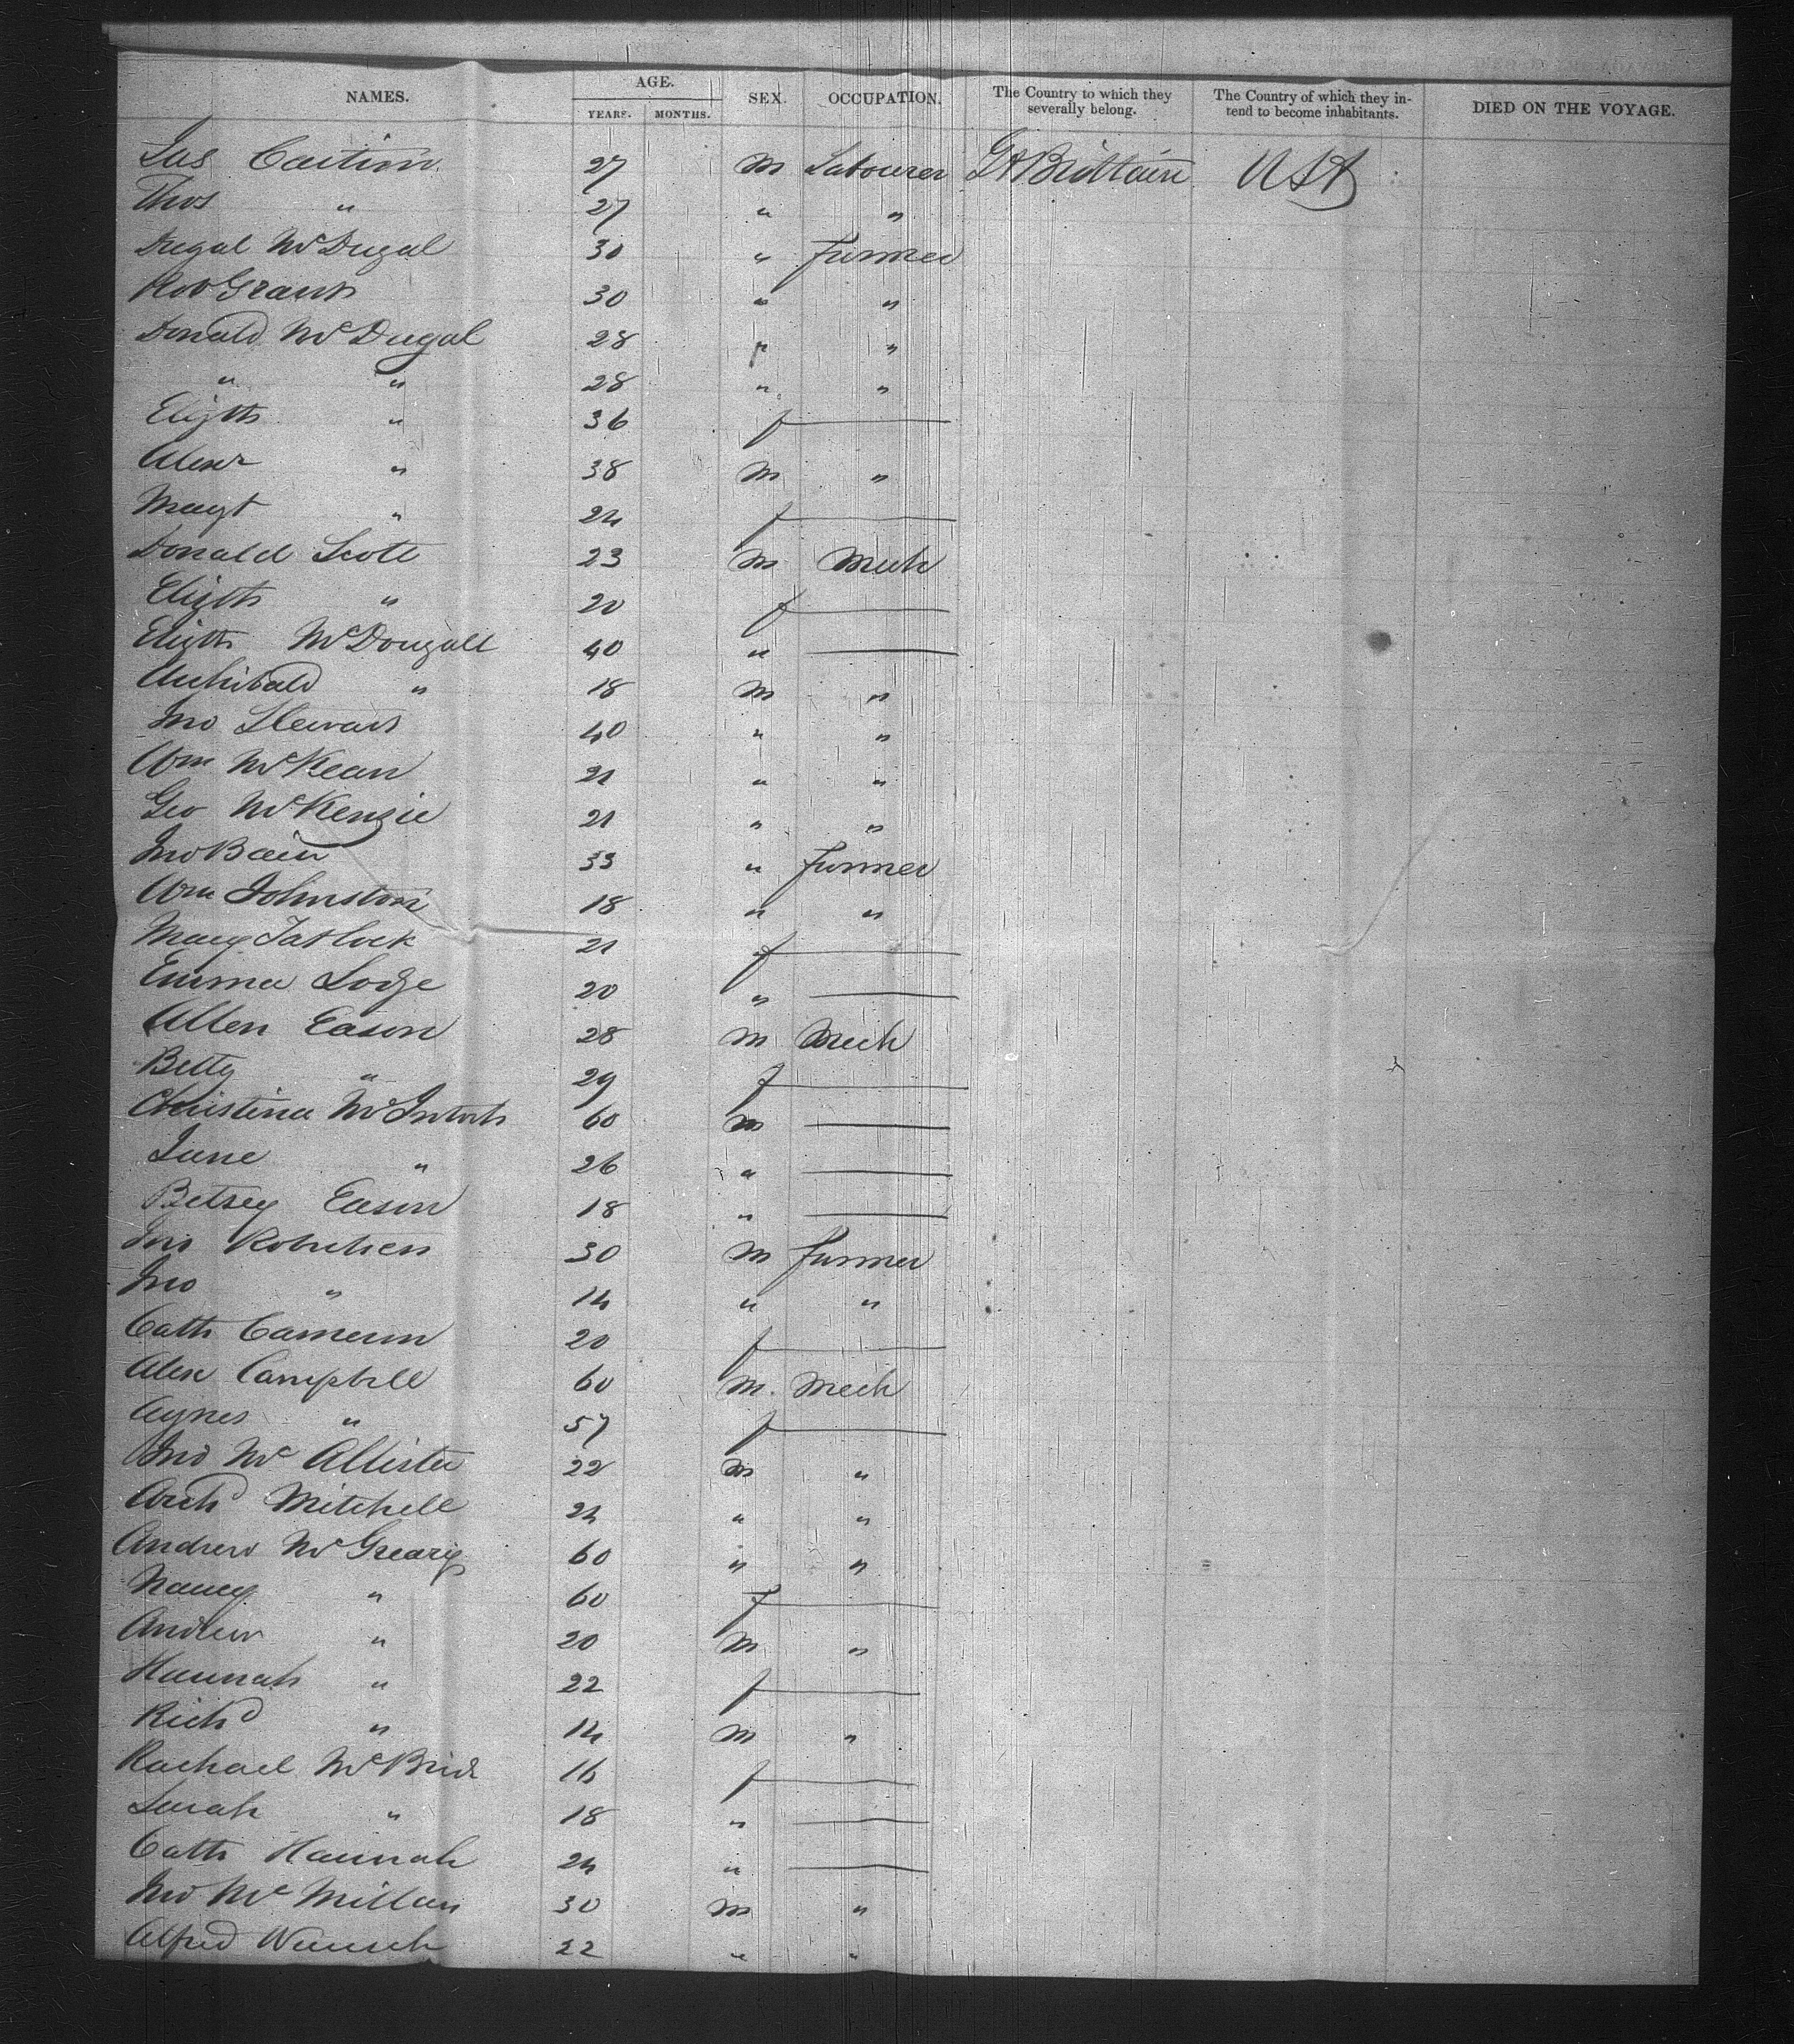 NAMES. AGE. YEARS. MONTHS. SEX. OCCUPATION. The Country to which they severally belong. The Country of which they intend to become inhabitants. DIED ON THE VOYAGE.
Jas 27 M Labourer Gt Brittain USA
Thos " 27 " "
Dugal McDugal 30 " Farmer
Rob Grant 30 " "
Donald McDugal 28 " "
" " 28 " "
Elizth " 36 f
Alexr " 38 M "
Magt " 24 f
Donald Scott 23 M Mech
Elizth " 20 f
Elizth McDougall 40 "
Archibald " 18 M "
Jno Stewart 40 " "
Wm McKean 21 " "
Geo McKenzie 21 " "
Jno Bain 33 " Farmer
Wm Johnston 18 " "
Mary Tatlock 21 f
Emma Lodge 20 "
Allen Eason 28 M Mech
Betty " 29 f
Christina McIntosh 60 M
Jane " 26 "
Betsey Eason 18 "
Jno Robertson 30 M Farmer
Jno " 14 " "
Cath Cameron 20 f
Alex Campbell 60 M. Mech
Agnes " 57 f
Jno McAllister 22 M "
Archd Mitchell 24 " "
Andrew McGreary 60 " "
Nancy " 60 f
Andrew " 20 M "
Hannah " 22 f
Richd " 14 M "
Rachael McBride 16 f
Sarah " 18 "
Cath Hannah 24 "
Jno McMillan 30 M "
Alfred 22 " "